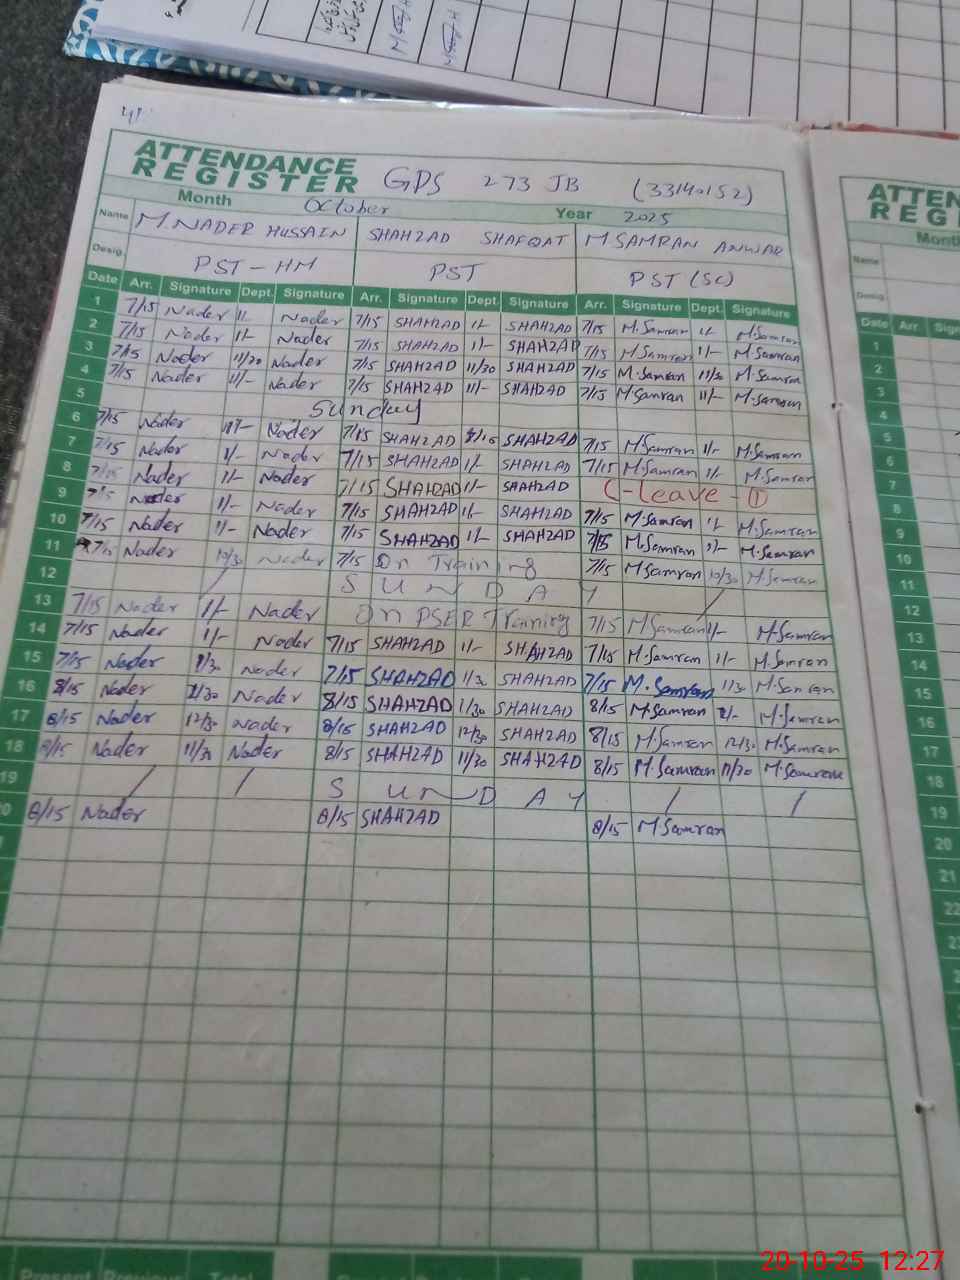 ATTENDANCE
REGISTER
GPS 273 JB (33140152)
Month October Year 2025
Name M.NADER HUSSAIN SHAHZAD SHAFQAT M.SAMRAN ANWAR
Desig. PST-HM PST PST (SC)
Date Arr. Signature Dept. Signature Arr. Signature Dept. Signature Arr. Signature Dept. Signature
1 7/15 Nader 1/- Nader 7/15 SHAHZAD 1/- SHAHZAD 7/15 M.Samran 1/- M.Samran
2 7/15 Nader 1/- Nader 7/15 SHAHZAD 1/- SHAHZAD 7/15 M.Samran 1/- M.Samran
3 7/15 Nader 11/30 Nader 7/15 SHAHZAD 11/30 SHAHZAD 7/15 M.Samran 11/30 M.Samran
4 7/15 Nader 11/- Nader 7/15 SHAHZAD 11/- SHAHZAD 7/15 M.Samran 11/- M.Samran
5 Sunday
6 7/15 Nader Nader 7/15 SHAHZAD SHAHZAD 7/15 M.Samran 1/- M.Samran
7 7/15 Nader 1/- Nader 7/15 SHAHZAD 1/- SHAHZAD 7/15 M.Samran 1/- M.Samran
8 7/15 Nader 1/- Nader 7/15 SHAHZAD 1/- SHAHZAD C-leave-①
9 7/15 Nader 1/- Nader 7/15 SHAHZAD 1/- SHAHZAD 7/15 M.Samran 1/- M.Samran
10 7/15 Nader 1/- Nader 7/15 SHAHZAD 1/- SHAHZAD 7/15 M.Samran 1/- M.Samran
11 7/15 Nader 10/30 Nader 7/15 On Training 7/15 M.Samran 10/30 M.Samran
12 SUNDAY
13 7/15 Nader 1/- Nader On PSER Training 7/15 M.Samran 1/- M.Samran
14 7/15 Nader 1/- Nader 7/15 SHAHZAD 1/- SHAHZAD 7/15 M.Samran 1/- M.Samran
15 7/15 Nader 1/30 Nader 7/15 SHAHZAD 1/30 SHAHZAD 7/15 M.Samran 1/30 M.Samran
16 8/15 Nader 1/30 Nader 8/15 SHAHZAD 1/30 SHAHZAD 8/15 M.Samran M.Samran
17 8/15 Nader 12/30 Nader 8/15 SHAHZAD 12/30 SHAHZAD 8/15 M.Samran 12/30 M.Samran
18 8/15 Nader 11/30 Nader 8/15 SHAHZAD 11/30 SHAHZAD 8/15 M.Samran 11/30 M.Samran
19 SUNDAY
8/15 Nader 8/15 SHAHZAD 8/15 M.Samran
ATTEN
REG
Month
Name
Desig.
Date Arr
1
2
3
4
5
6
7
8
9
10
11
12
13
14
15
16
17
18
19
20
21
22
20-10-25 12:27